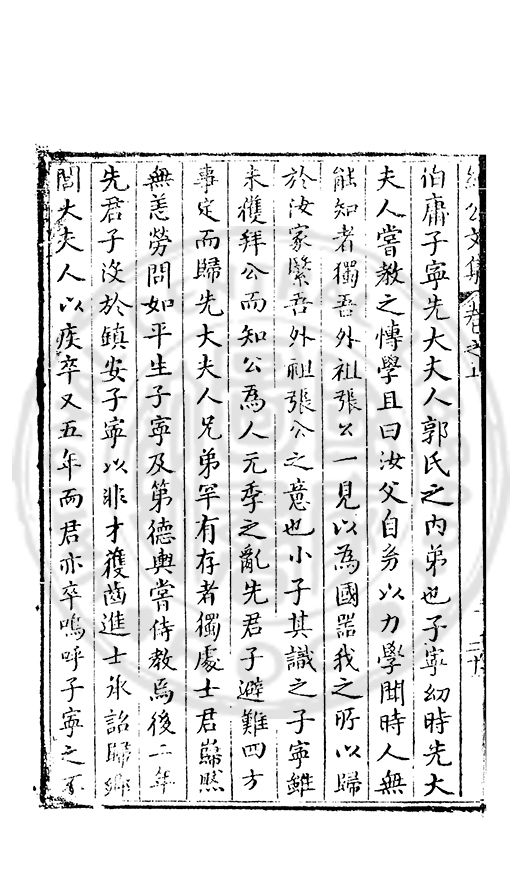 公文集 卷之五
伯庸子寧先大夫人郭氏之內弟也子寧幼時先大
夫人嘗教之慱學且曰汝父自努以力學聞時人無
能知者獨吾外祖張公一見以為國器我之所以歸
於汝家緊吾外祖張公之意也小子其識之子寧雖
未獲拜公而知公為人元季之亂先君子避難四方
事定而歸先大夫人兄弟罕有存者獨處士君巋然
無恙勞問如平生子寧及第德輿嘗侍教焉後二年
先君子沒於鎮安子寧以非才獲茵進士承詔歸鄉
閭大夫人以疾卒又五年而君亦卒嗚呼子寧之不